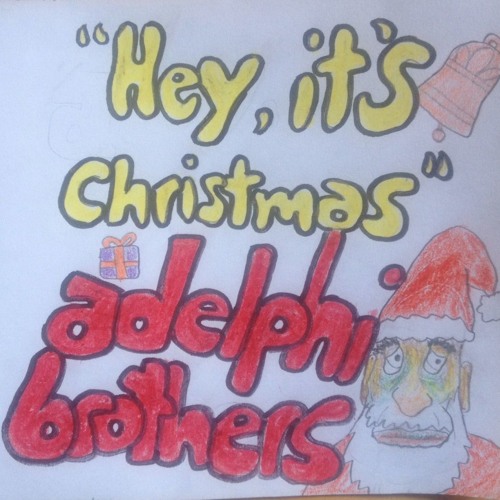 "Hey, it's
Christmas"
adelphi
brothers